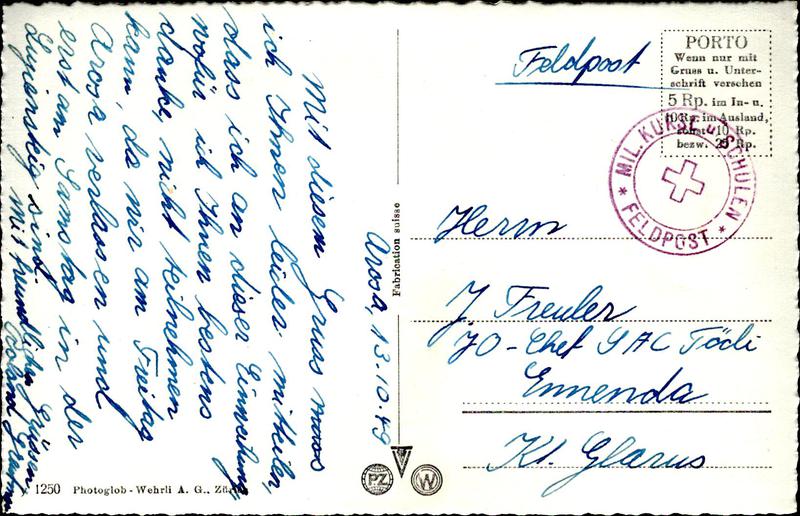 Arosa, 13.10.49
Mit diesem Gruss muss
ich Ihnen leider mitteilen,
dass ich an dieser Einweihung,
wofür ich Ihnen bestens
danke, nicht teilnehmen
kann, da wir am Freitag
Arosa verlassen und
erst am Samstag in der
sind.
Mit freundlichen Grüssen
1250 Photoglob-Wehrli A. G.,
Fabrication suisse
PZ
W
Feldpost
PORTO
Wenn nur mit
Gruss u. Unter-
schrift versehen
5 Rp. im In- u.
10 Rp. im Ausland,
sonst 10 Rp.
bezw. 25 Rp.
MIL. KURSE u. SCHULEN
* FELDPOST *
Herrn
J. Freuler
JO-Chef SAC Tödi
Ennenda
Kt. Glarus